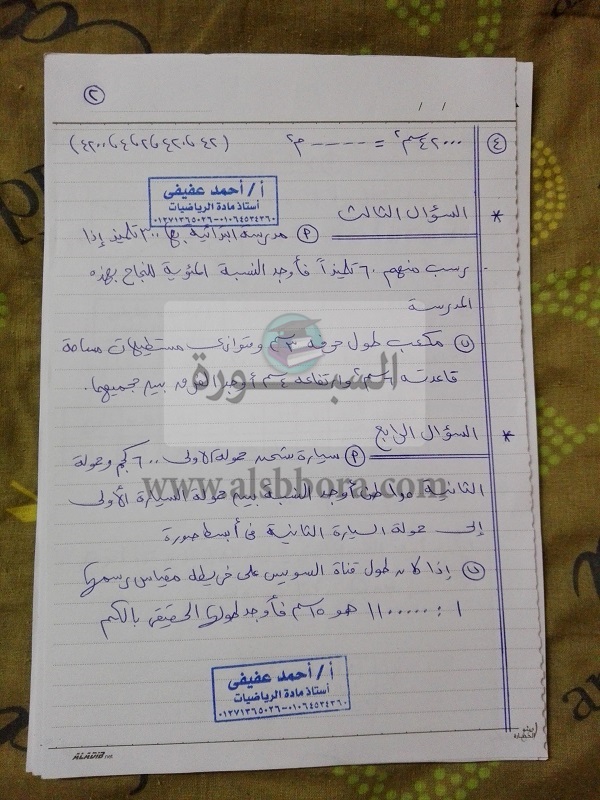 ٢
/ /
٤ ٤٢٠٠٠ سم٢ = ---- م٢ (٤٢ ، ٤٢٠ ، ٤,٢ ، ٤٢٠٠)
أ / أحمد عفيفى
أستاذ مادة الرياضيات
* السؤال الثالث
٠١٠٦٤٥٢٤٣٦٠-٠١٢٧١٣٦٥٠٣٦
أ مدرسة ابتدائية بها ٣٠٠ تلميذ إذا
رسب منهم ٦٠ تلميذاً فأوجد النسبة المئوية للنجاح بهذه
المدرسة
السبورة
ب مكعب طول حرفه ٣سم ومتوازى مستطيلات مساحة
قاعدته ٦سم٢ وارتفاعه ٤سم أوجد الفرق بين حجميهما.
* السؤال الرابع
أ سيارة شحن حمولة الأولى ٦٠٠ كجم وحمولة
www.alsbbora.com
الثانية ١,٥ طن أوجد النسبة بين حمولة السيارة الأولى
إلى حمولة السيارة الثانية فى أبسط صورة
ب إذا كان طول قناة السويس على خريطة مقياس رسمها
١ : ١١٠٠٠٠٠ هو ١٥سم فأوجد طولها الحقيقى بالكم
أ / أحمد عفيفى
أستاذ مادة الرياضيات
٠١٠٦٤٥٢٤٣٦٠-٠١٢٧١٣٦٥٠٣٦
ALADIB.net